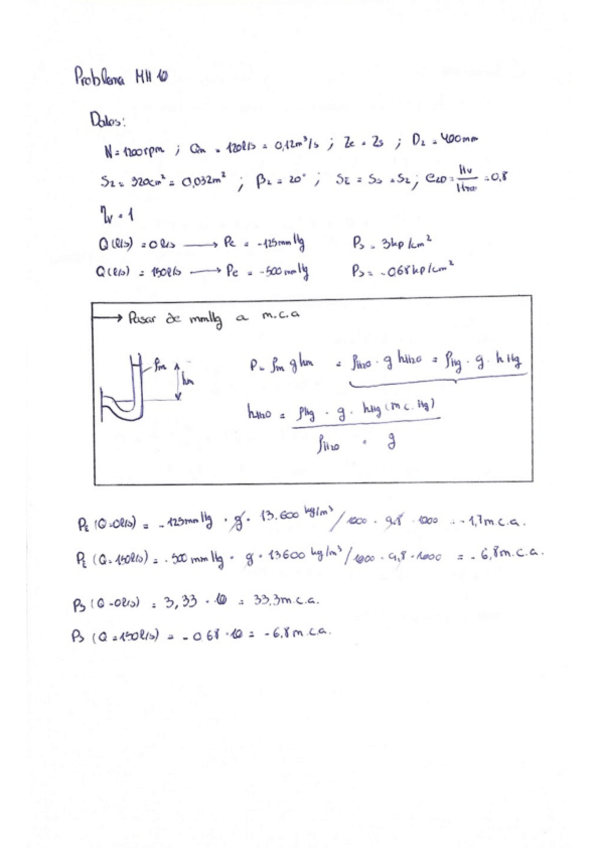 Problema MH 10
Datos:
N = 1200rpm ; Qn = 120l/s = 0,12m³/s ; Ze = Zs ; D₂ = 400mm
S₂ = 320cm² = 0,032m² ; β₂ = 20° ; SE = Ss = S₂ ; e₂₀ = Hu/Ht∞ = 0.8
ηv = 1
Q (l/s) = 0 l/s → PE = -125mmHg Ps = 3kp/cm²
Q (l/s) = 150l/s → PE = -500mmHg Ps = -068kp/cm²
→ Pasar de mmHg a m.c.a
ρm hm
P = ρm g hm = ρH2O · g hH2O = ρHg · g · hHg
hH2O = ρHg · g · hHg (m c. Hg) / ρH2O · g
PE (Q=0l/s) = -125mmHg · g · 13.600 kg/m³ / 1000 · 9,8 · 1000 = -1,7m c.a.
PE (Q=150l/s) = -500 mmHg · g · 13600 kg/m³ / 1000 · 9,8 · 1000 = -6,8m.c.a.
Ps (Q=0l/s) = 3,33 · 10 = 33.3m c.a.
Ps (Q=150l/s) = -068 · 10 = -6,8m c.a.